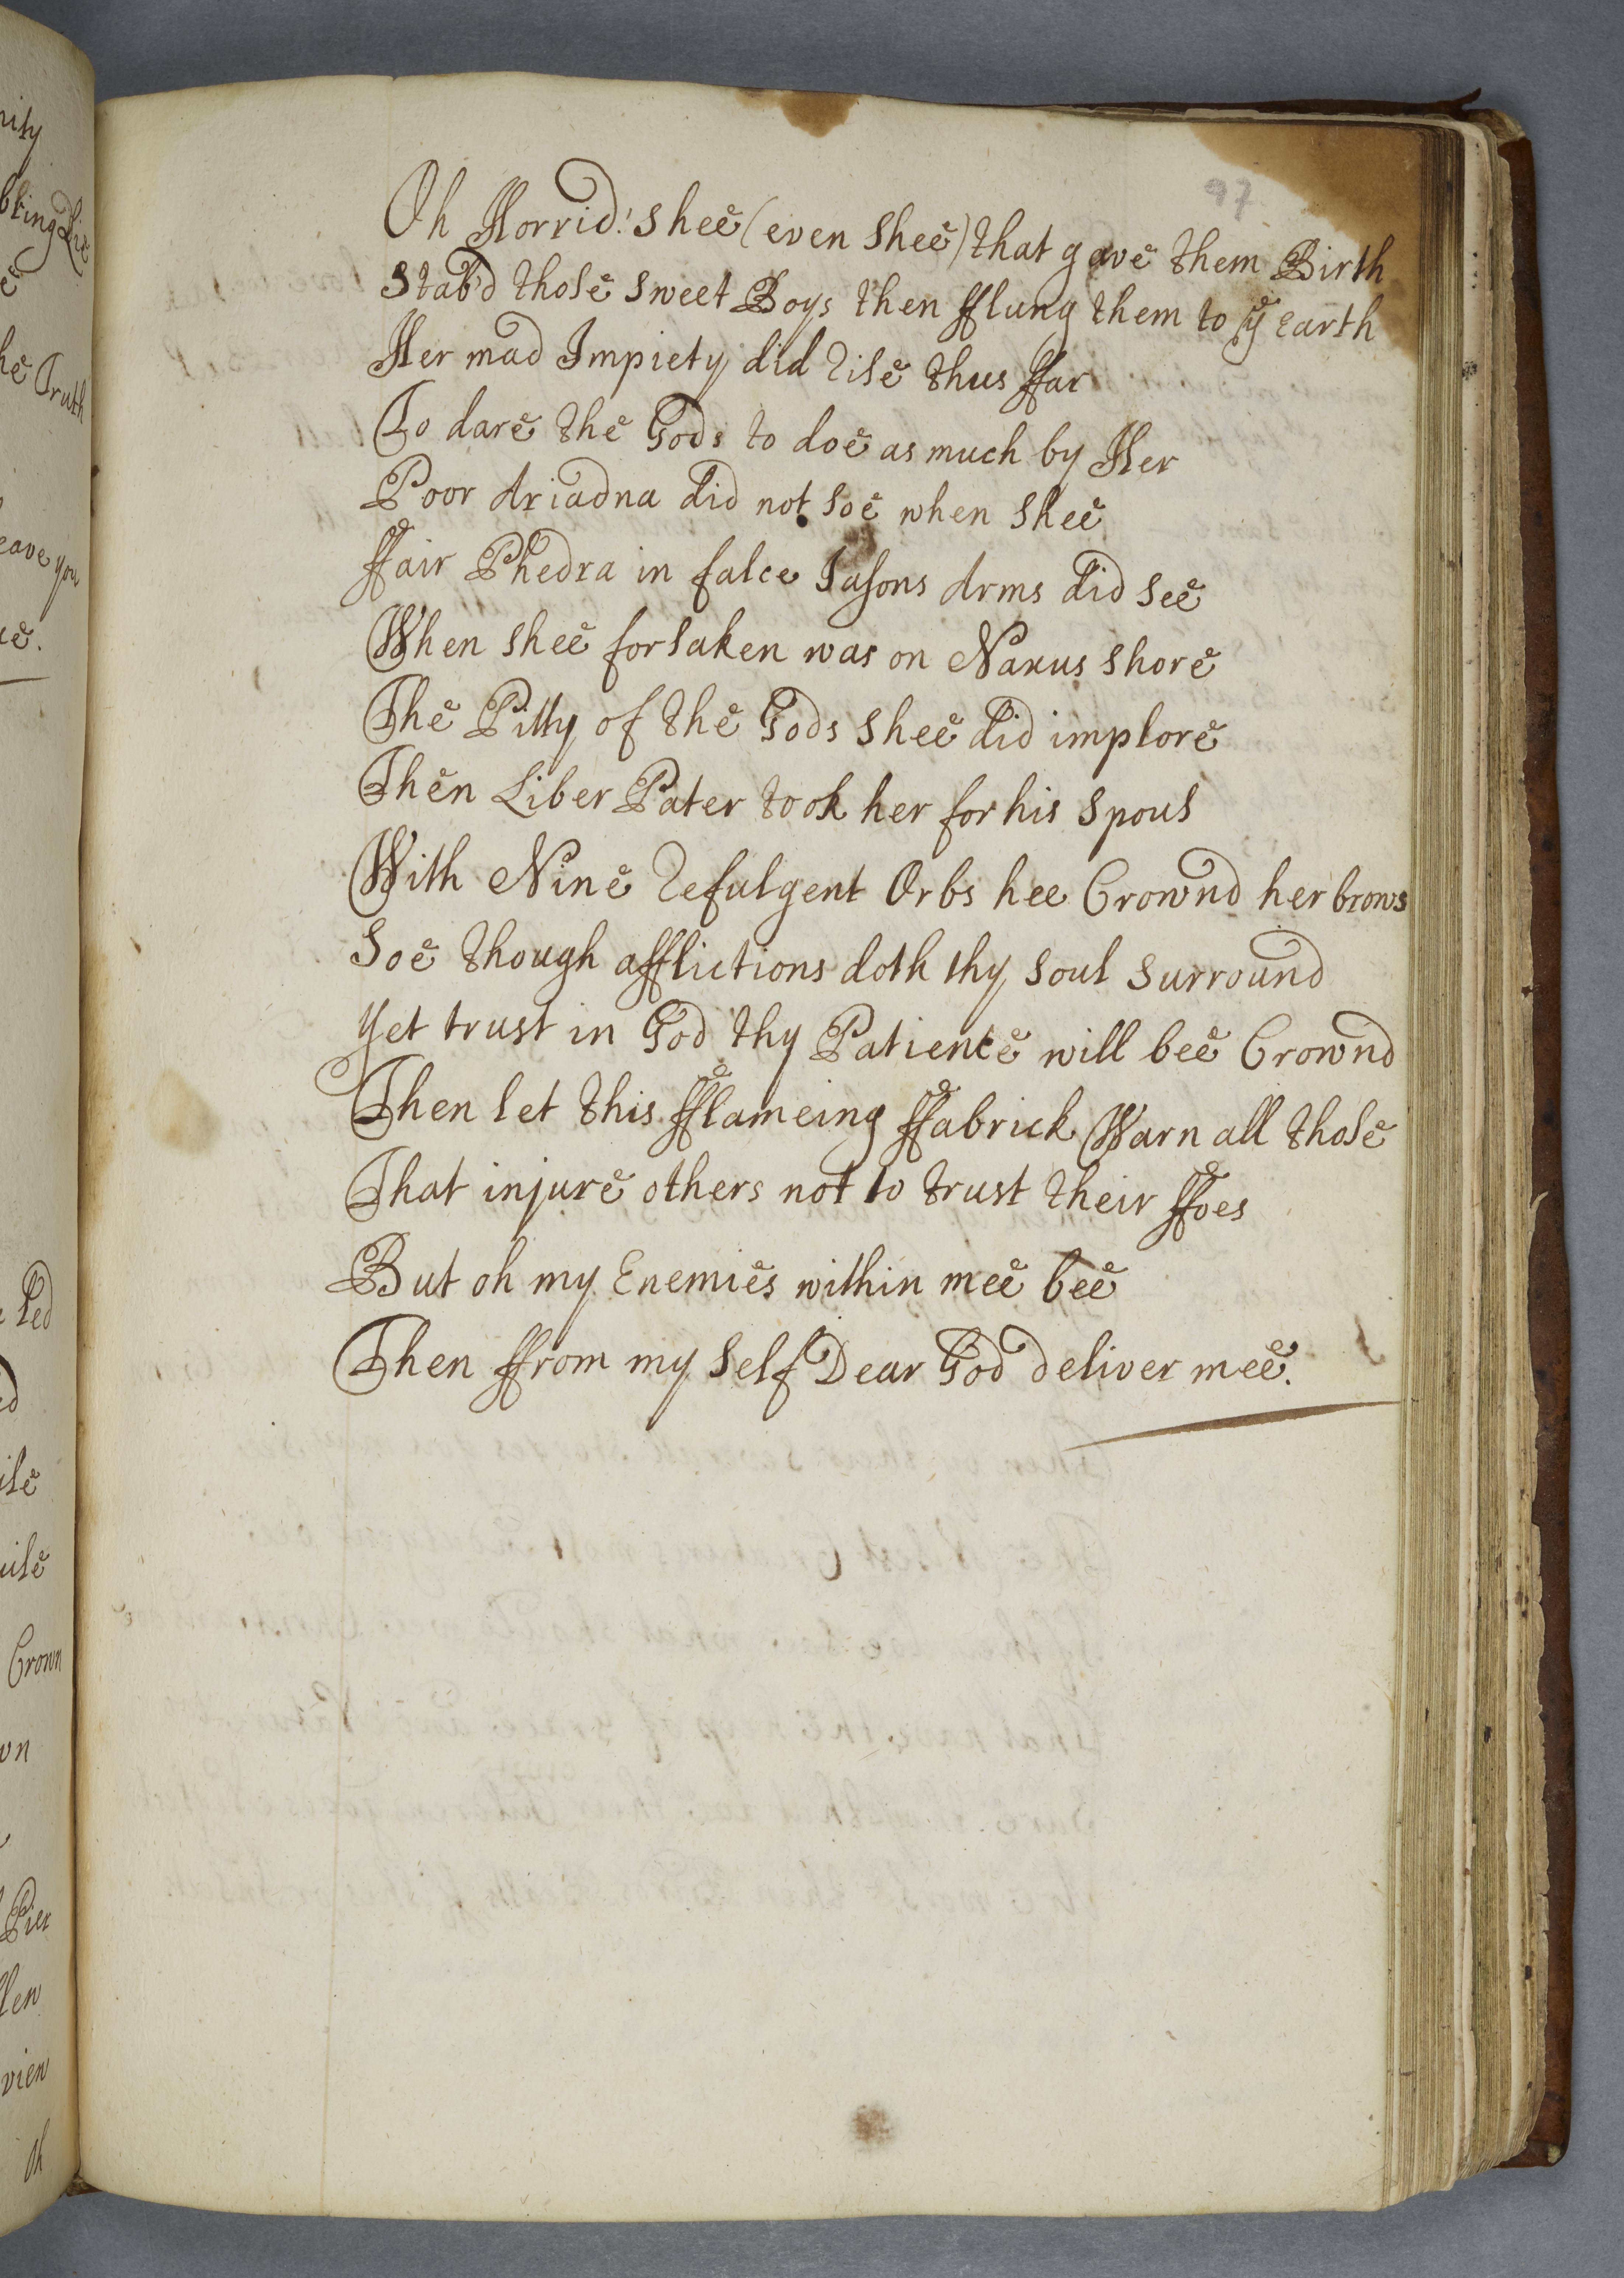 97
Oh Horrid! shee (even shee) that gave them Birth
Stab'd those sweet Boys then fflung them to ye earth
Her mad Impiety did rise thus ffar
To dare the Gods to doe as much by Her
Poor Ariadna did not soe when shee
ffair Phedra in false Jasons Arms did see
When shee forsaken was on Naxus shore
The Pitty of the Gods shee did implore
Then Liber Pater took her for his spous
With Nine refulgent Orbs hee Crownd her brows
Soe though afflictions doth thy soul surround
Yet trust in God thy Patience will bee Crownd
Then let this fflameing ffabrick Warn all those
That injure others not to trust their ffoes
But oh my Enemies within mee bee
Then ffrom my self Dear God deliver mee.